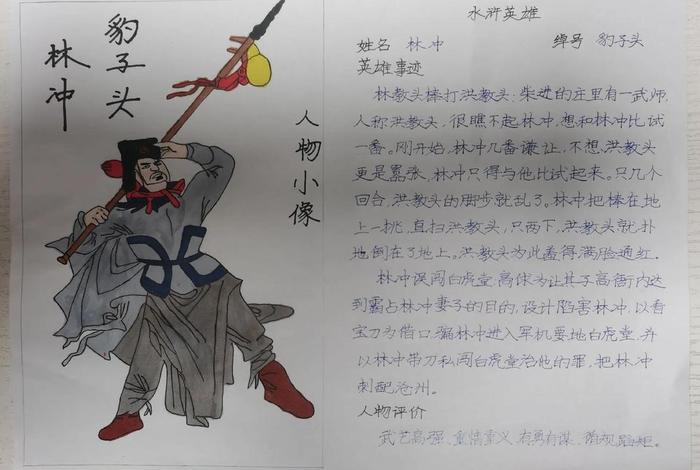 豹子头
林冲
人物小像
水浒英雄
姓名 林冲 绰号 豹子头
英雄事迹
林教头棒打洪教头:柴进的庄里有一武师,
人称洪教头,很瞧不起林冲,想和林冲比试
一番。刚开始,林冲几番谦让,不想,洪教头
更是嚣张,林冲只得与他比试起来。只几个
回合,洪教头的脚步就乱了。林冲把棒在地
上一挑,直扫洪教头,只两下,洪教头就扑
地倒在了地上。洪教头为此羞得满脸通红.
林冲误闯白虎堂,高俅为让其子高衙内达
到霸占林冲妻子的目的,设计陷害林冲,以看
宝刀为借口,骗林冲进入军机要地白虎堂,并
以林冲带刀私闯白虎堂治他的罪,把林冲
刺配沧州。
人物评价
武艺高强、重情重义、有勇有谋、循规蹈矩。